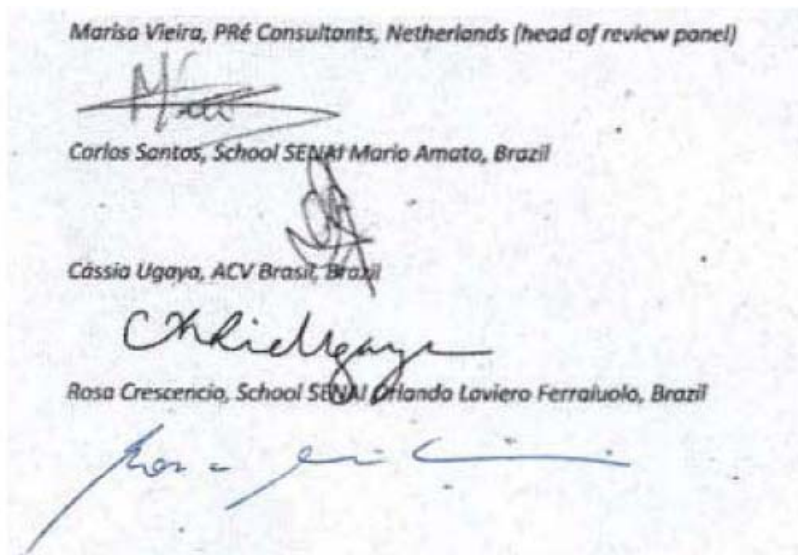 Marisa Vieira, PRé Consultants, Netherlands (head of review panel)
Carlos Santos, School SENAI Mario Amato, Brazil
Cássia Ugaya, ACV Brasil, Brazil
Rosa Crescencio, School SENAI Orlando Laviero Ferraiuolo, Brazil